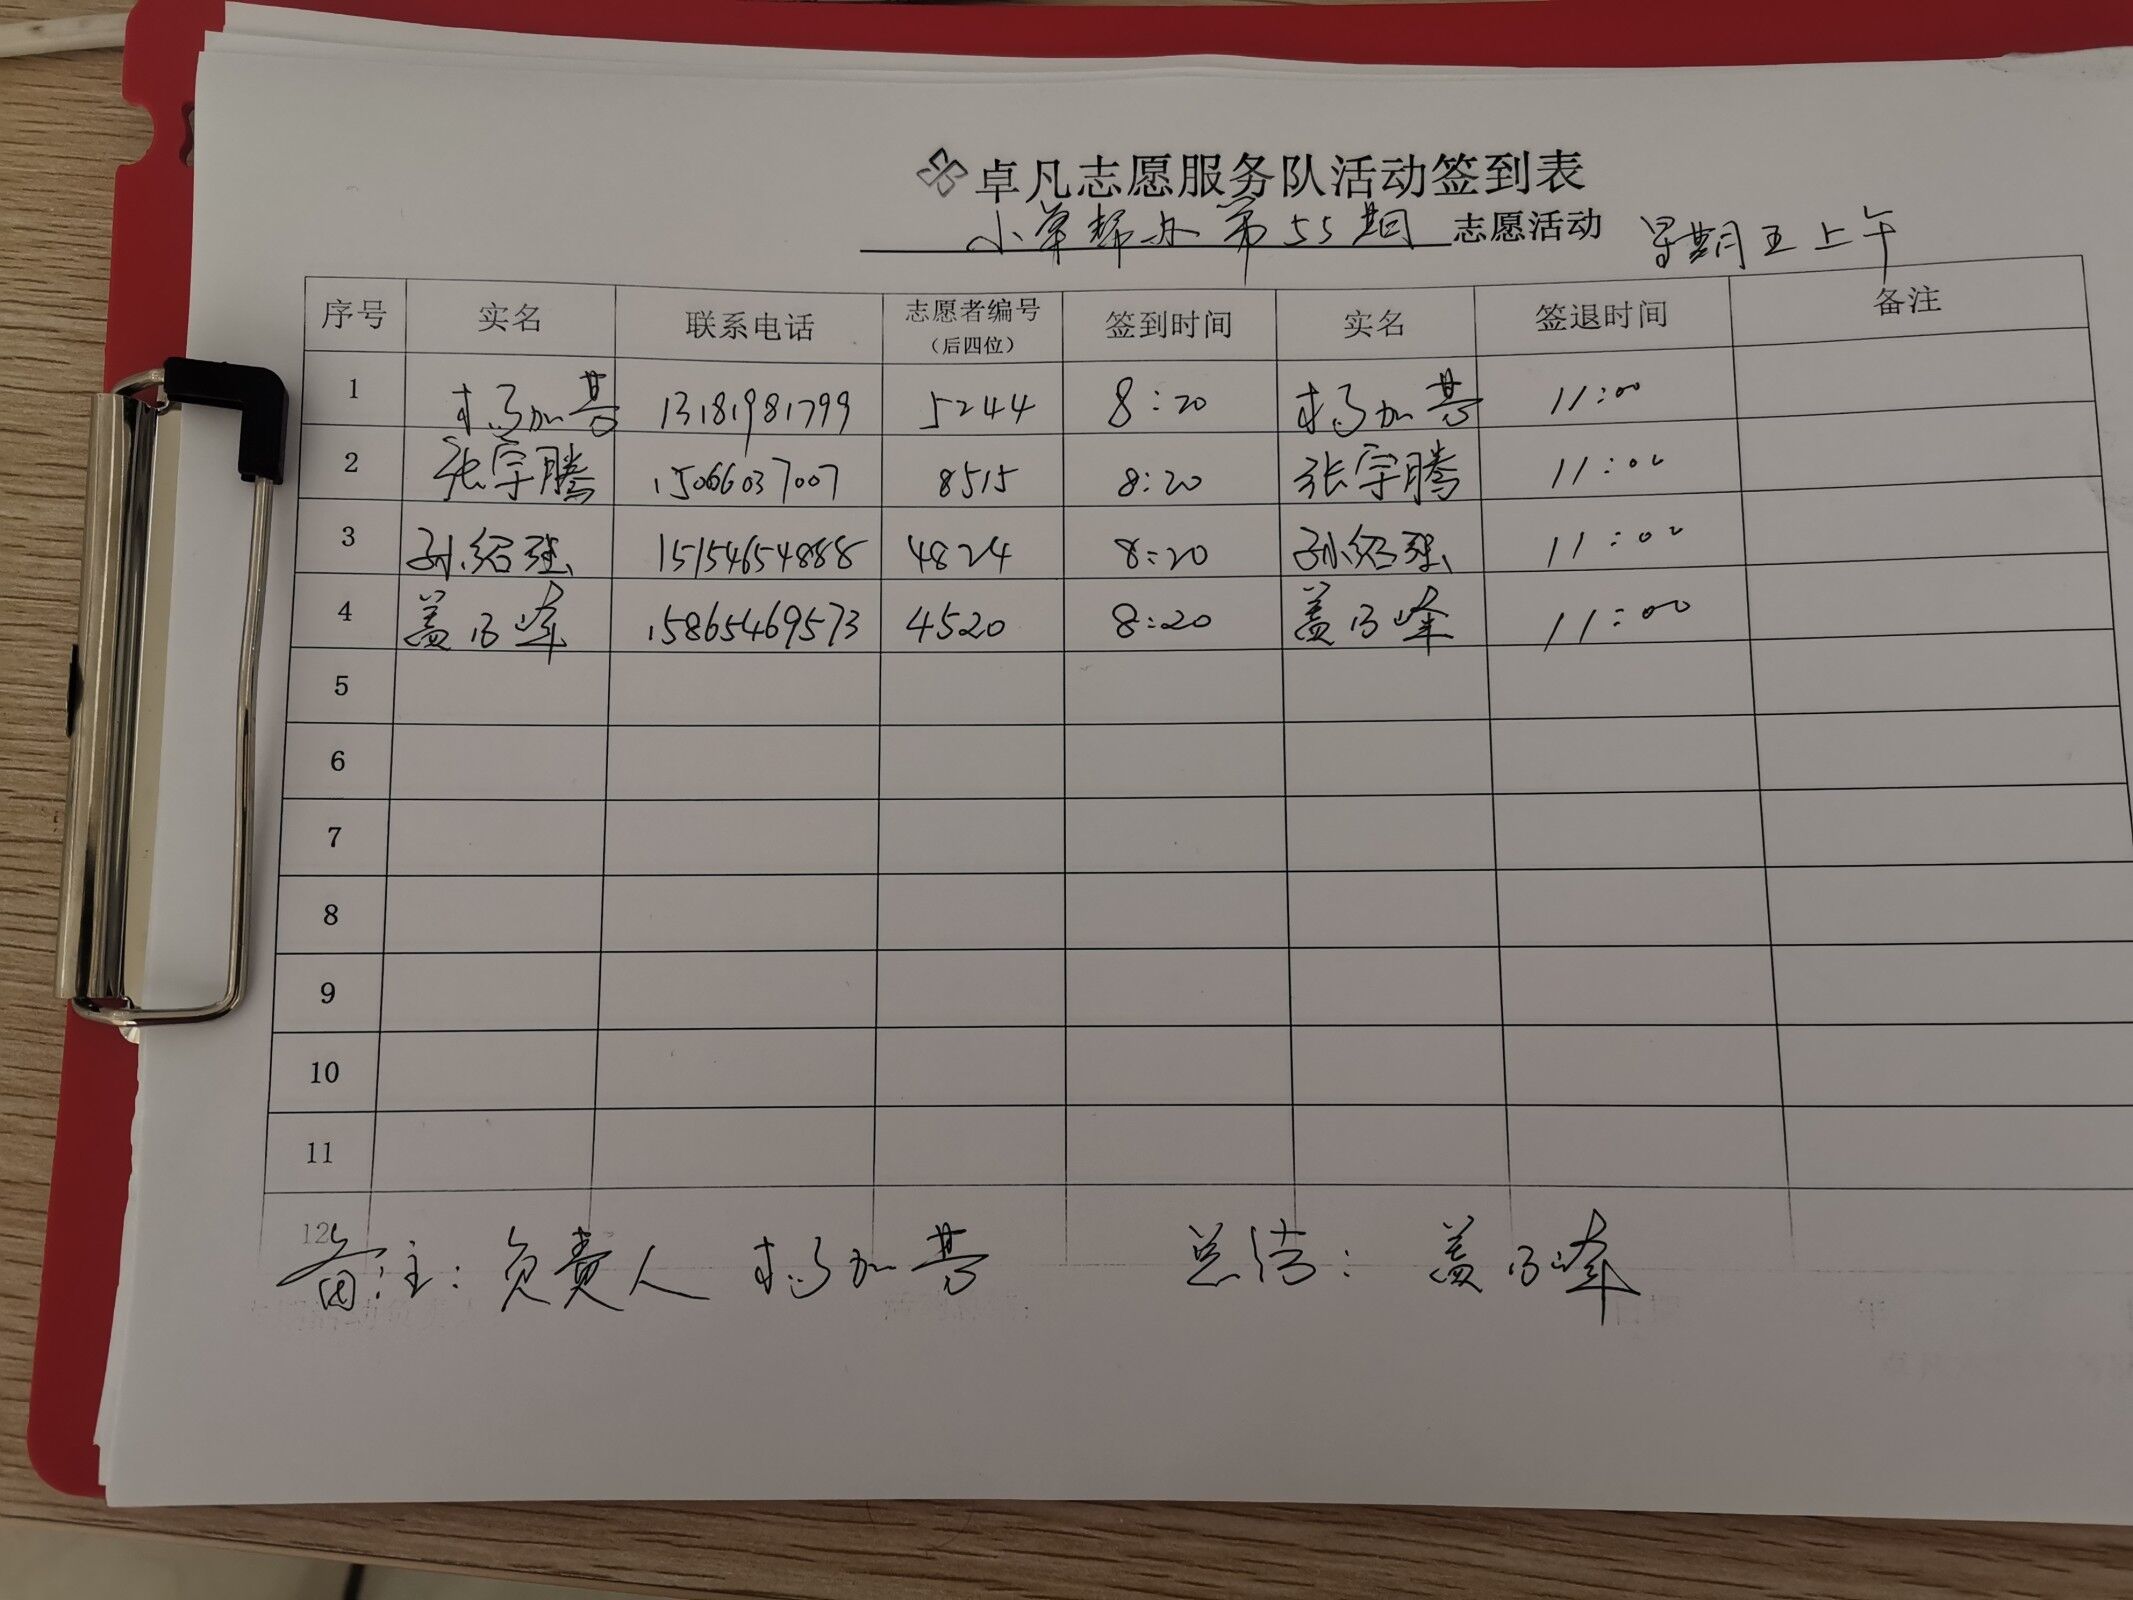 卓凡志愿服务队活动签到表
小草帮办第55期志愿活动 星期五上午
序号 实名 联系电话 志愿者编号（后四位） 签到时间 实名 签退时间 备注
1 杨加营 13181981799 5244 8:20 杨加营 11:00
2 张宇腾 15066037007 8515 8:20 张宇腾 11:00
3 孙绍强 15154654888 4824 8:20 孙绍强 11:00
4 盖乃峰 15865469573 4520 8:20 盖乃峰 11:00
5
6
7
8
9
10
11
12
备注：负责人 杨加营 总结：盖乃峰